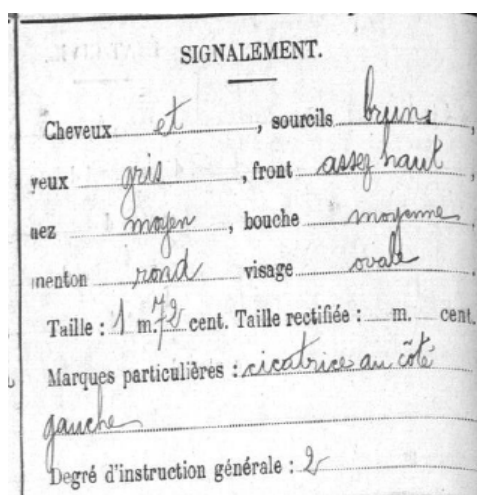 SIGNALEMENT.
Cheveux et, sourcils bruns,
yeux gris, front assez haut,
nez moyen, bouche moyenne,
menton rond visage ovale.
Taille : 1 m. 72 cent. Taille rectifiée : m. cent.
Marques particulières : cicatrice au côté
gauche
Degré d'instruction générale : 2